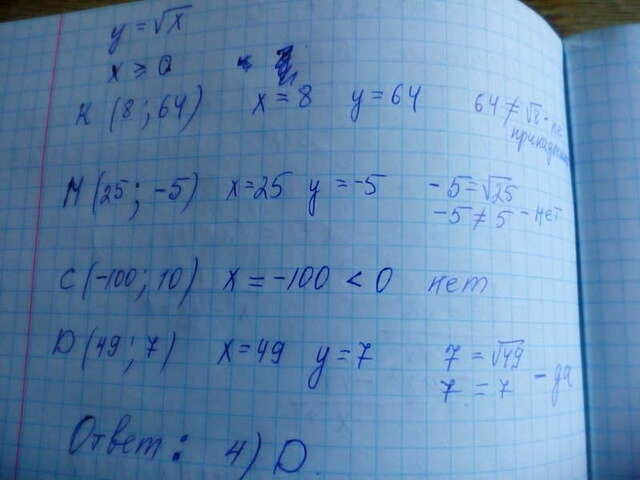 y = √x
x ⩾ 0
K (8; 64) x = 8 y = 64 64 ≠ √8 - не
принадлежит
M (25; -5) x = 25 y = -5 -5 = √25
-5 ≠ 5 - нет
C (-100; 10) x = -100 < 0 нет
D (49; 7) x = 49 y = 7 7 = √49
7 = 7 - да
Ответ: 4) D